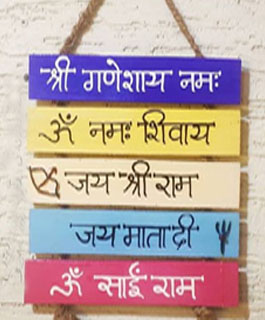 श्री गणेशाय नमः
ॐ नमः शिवाय
जय श्री राम
जय माता दी
ॐ साईं राम